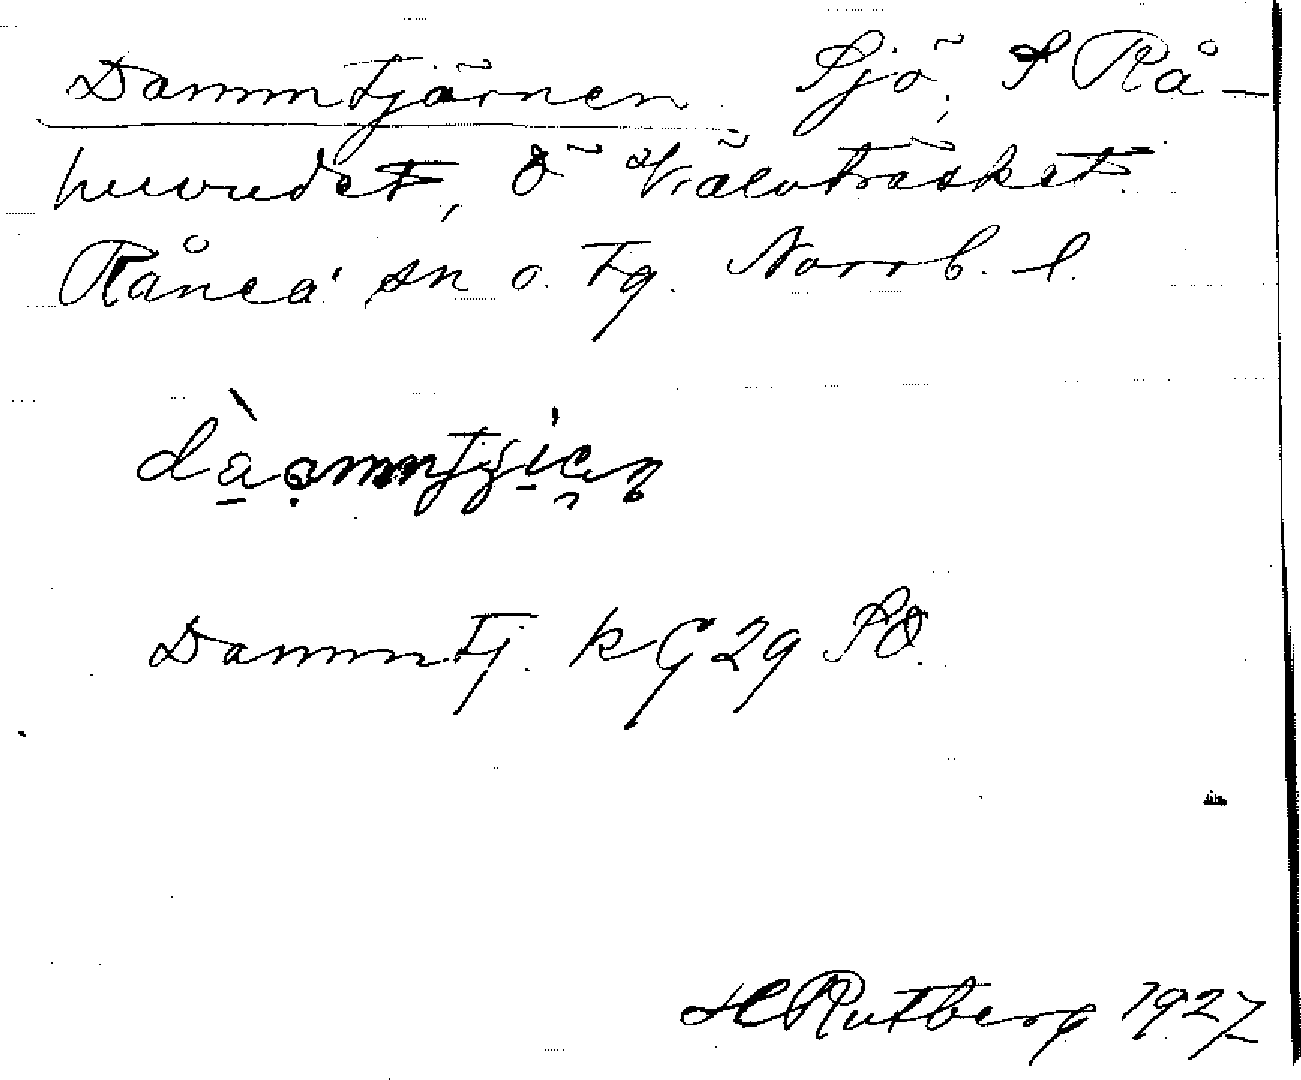 Dammtjärnen. Sjö, S Rå-
huvudet, Ö Vralvträsket.
Råneå sn o. tg. Norrb. l.
Dammtj. k G 29 SO.
H Rutberg 1927